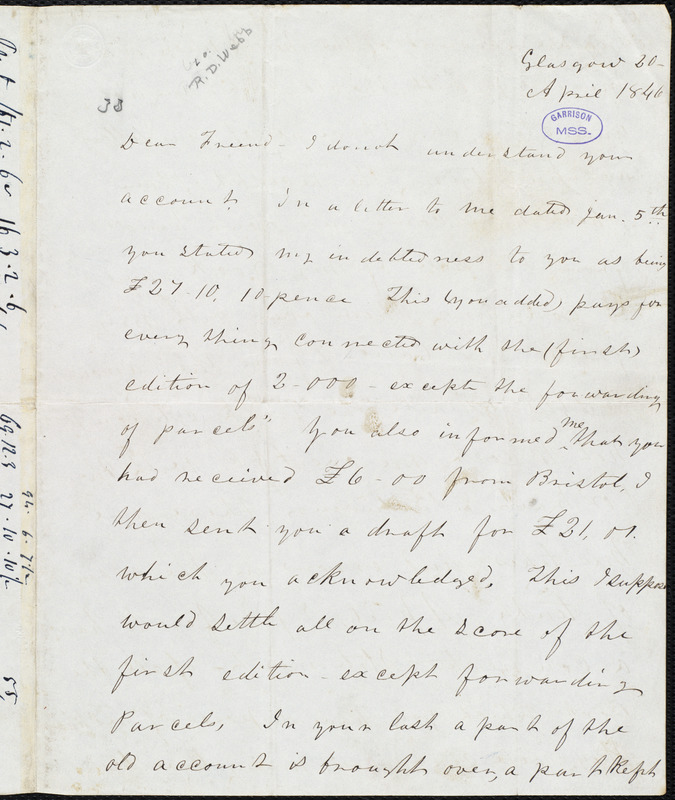 to.
R. D. Webb
38
Glasgow 20-
April 1846
GARRISON
MSS.
Dear Freend - I donot understand your
account. In a letter to me dated Jan. 5th
you stated my indebtedness to you as being
£27-10, 10-pence This (you added) pays for
every thing connected with the (first)
edition of 2-000 - except the forwarding
of parcels" You also informed me that you
had received £6-00 from Bristol, I
then sent you a draft for £21, 01.
which you acknowledged, This I suppose
would settle all on the score of the
first edition except forwarding
Parcels, In your last a part of the
old account is brought over, a part kept